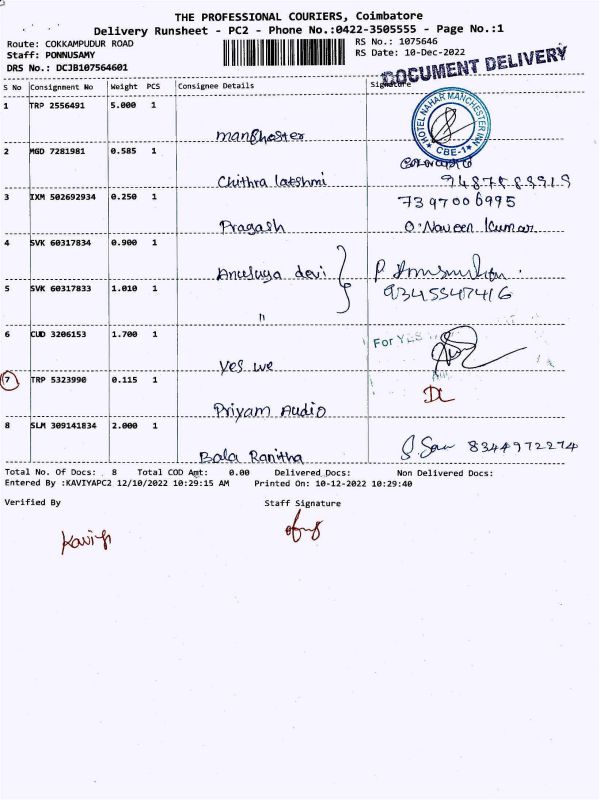 THE PROFESSIONAL COURIERS, Coimbatore
Delivery Runsheet - PC2 - Phone No.:0422-3505555 - Page No.:1
Route: COKKAMPUDUR ROAD
RS No.: 1075646
Staff: PONNUSAMY
RS Date: 10-Dec-2022
DRS No.: DCJB107564601
DOCUMENT DELIVERY
S No Consignment No Weight PCS Consignee Details Signature
1 TRP 2556491 5.000 1
HOTEL NAHAR MANCHESTER INN
★ CBE-1 ★
manghester
2 MGD 7281981 0.585 1
Chithra lakshmi
3 IXM 502692934 0.250 1 7397006995
Pragash O.Naveen kumar
4 SVK 60317834 0.900 1
Anusuya devi
5 SVK 60317833 1.010 1 9345547416
"
6 CUD 3206153 1.700 1 For YES
yes we
7 TRP 5323990 0.115 1 DL
Priyam Audio
8 SLM 309141834 2.000 1
Bala Ranitha 8344972274
Total No. Of Docs: 8 Total COD Amt: 0.00 Delivered Docs: Non Delivered Docs:
Entered By :KAVIYAPC2 12/10/2022 10:29:15 AM Printed On: 10-12-2022 10:29:40
Verified By Staff Signature
Kaviya